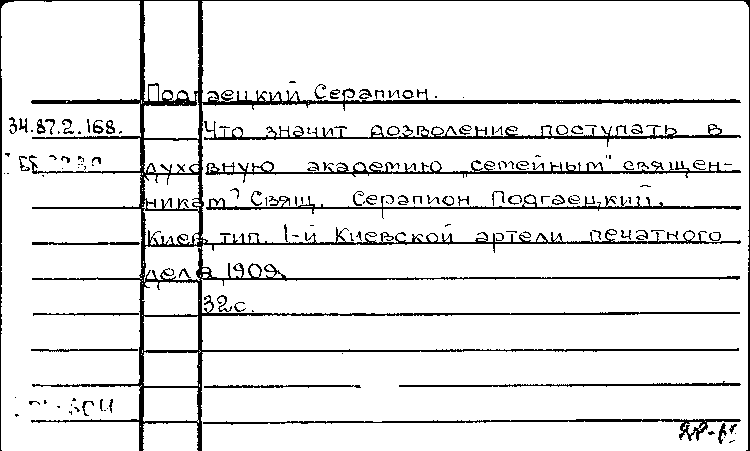 Подгаецкий, Серапион.
34.87.2.168. Что значит дозволение поступать в
духовную академию „семейным" священ-
никам? Свящ. Серапион Подгаецкий.
Киев, тип. 1-й Киевской артели печатного
дела, 1909.
32с.